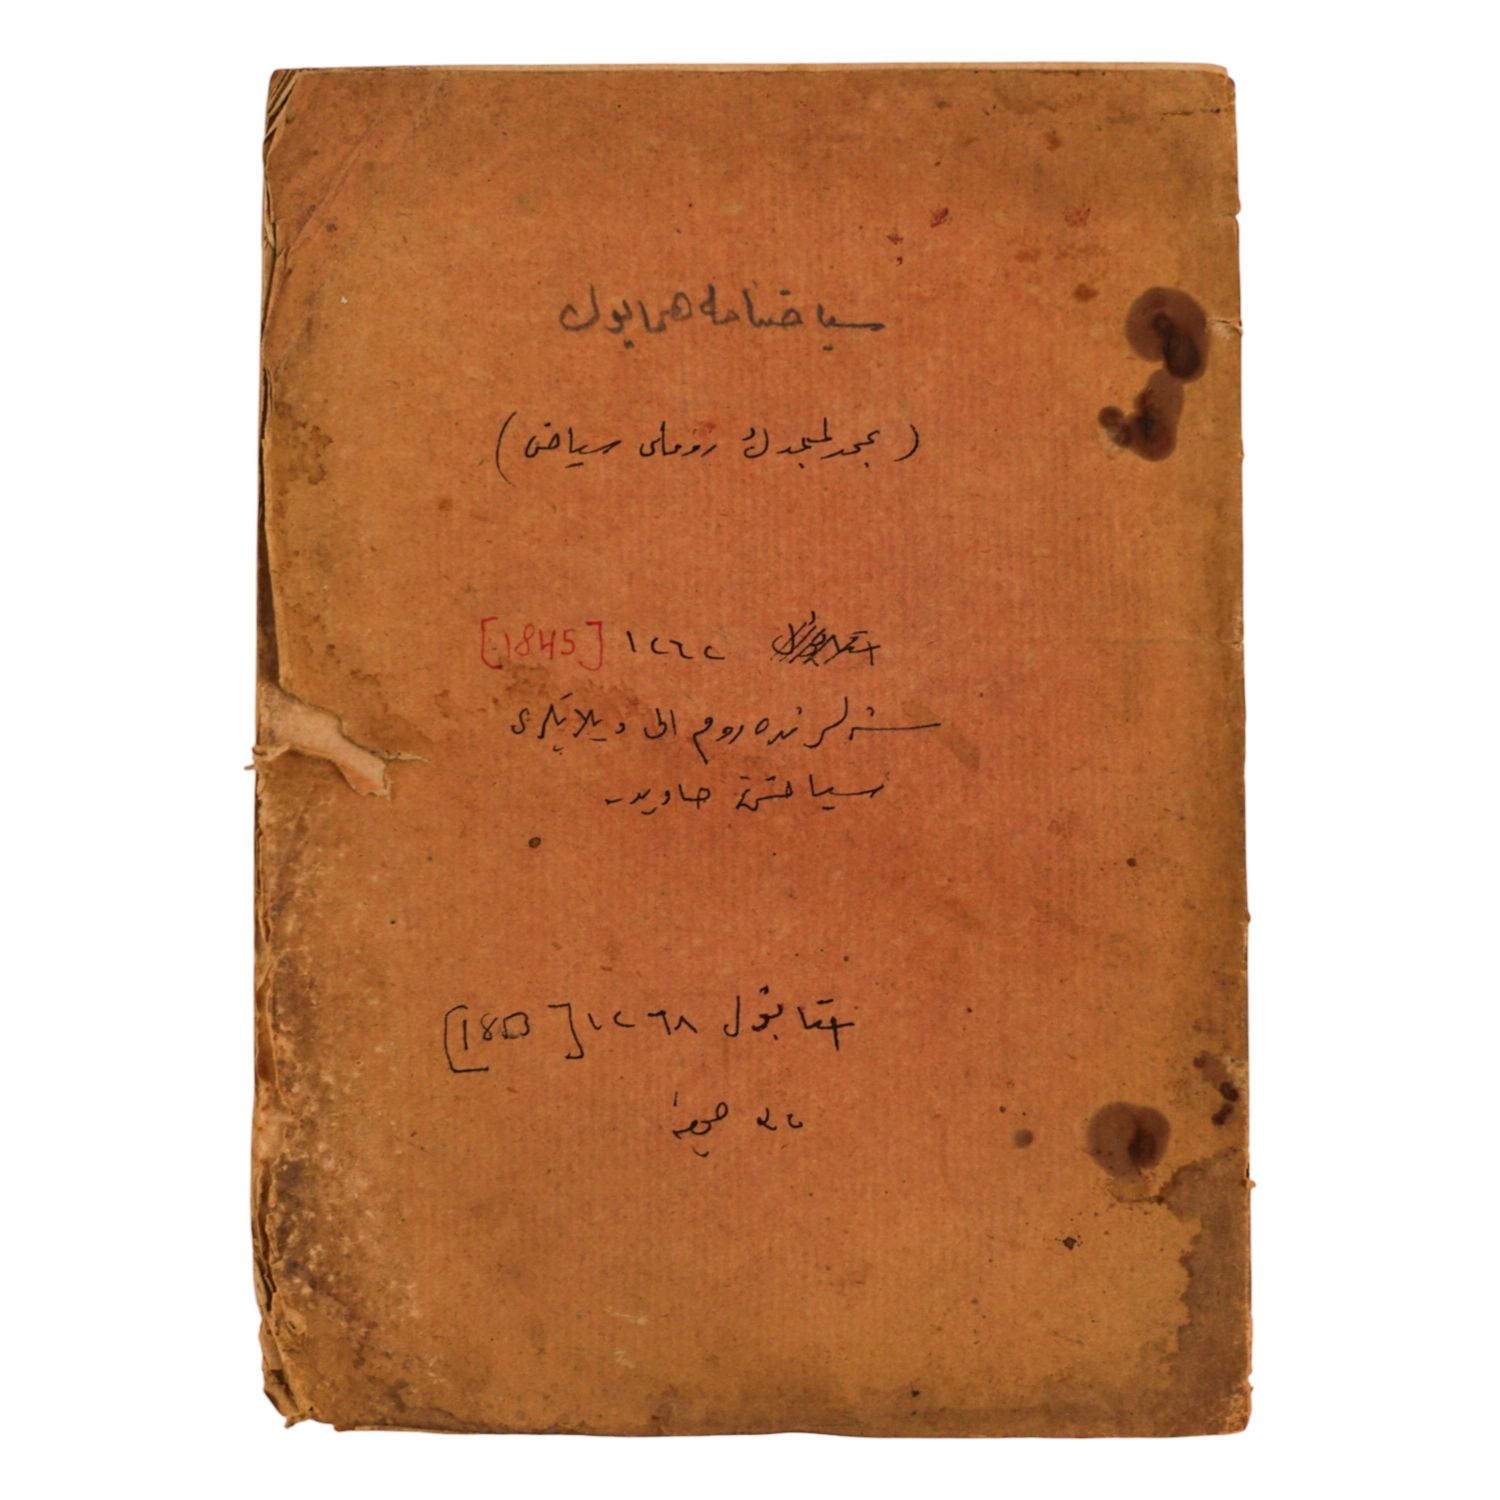 سیاحتنامه همایون
(عبدالمجیدك روملی سیاحتی)
١٢٦٢ [1845]
سنه‌لرنده روم ایلی
سیاحتنه حاویدر
استانبول ١٢٦٨
صحیفه